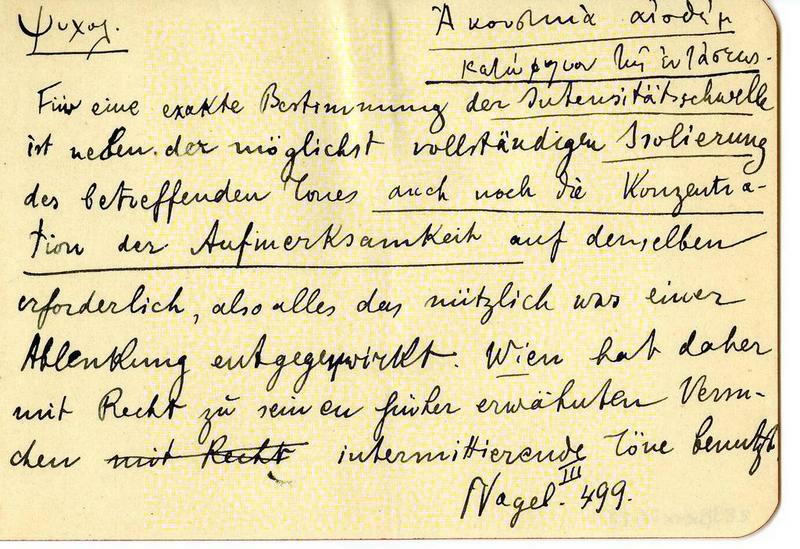 Ψυχολ.
Ἀκουστικὰ αἰσθήμ
κατώφλιον τῆς ἐντάσεως.
Für eine exakte Bestimmung der Intensitätsschwelle
ist neben der möglichst vollständigen Isolierung
des betreffenden Tones auch noch die Konzentra-
tion der Aufmerksamkeit auf denselben
erforderlich, also alles das nützlich was einer
Ablenkung entgegenwirkt. Wien hat daher
mit Recht zu seinen früher erwähnten Versu-
chen mit Recht intermittierende Töne benutzt.
Nagel. III 499.